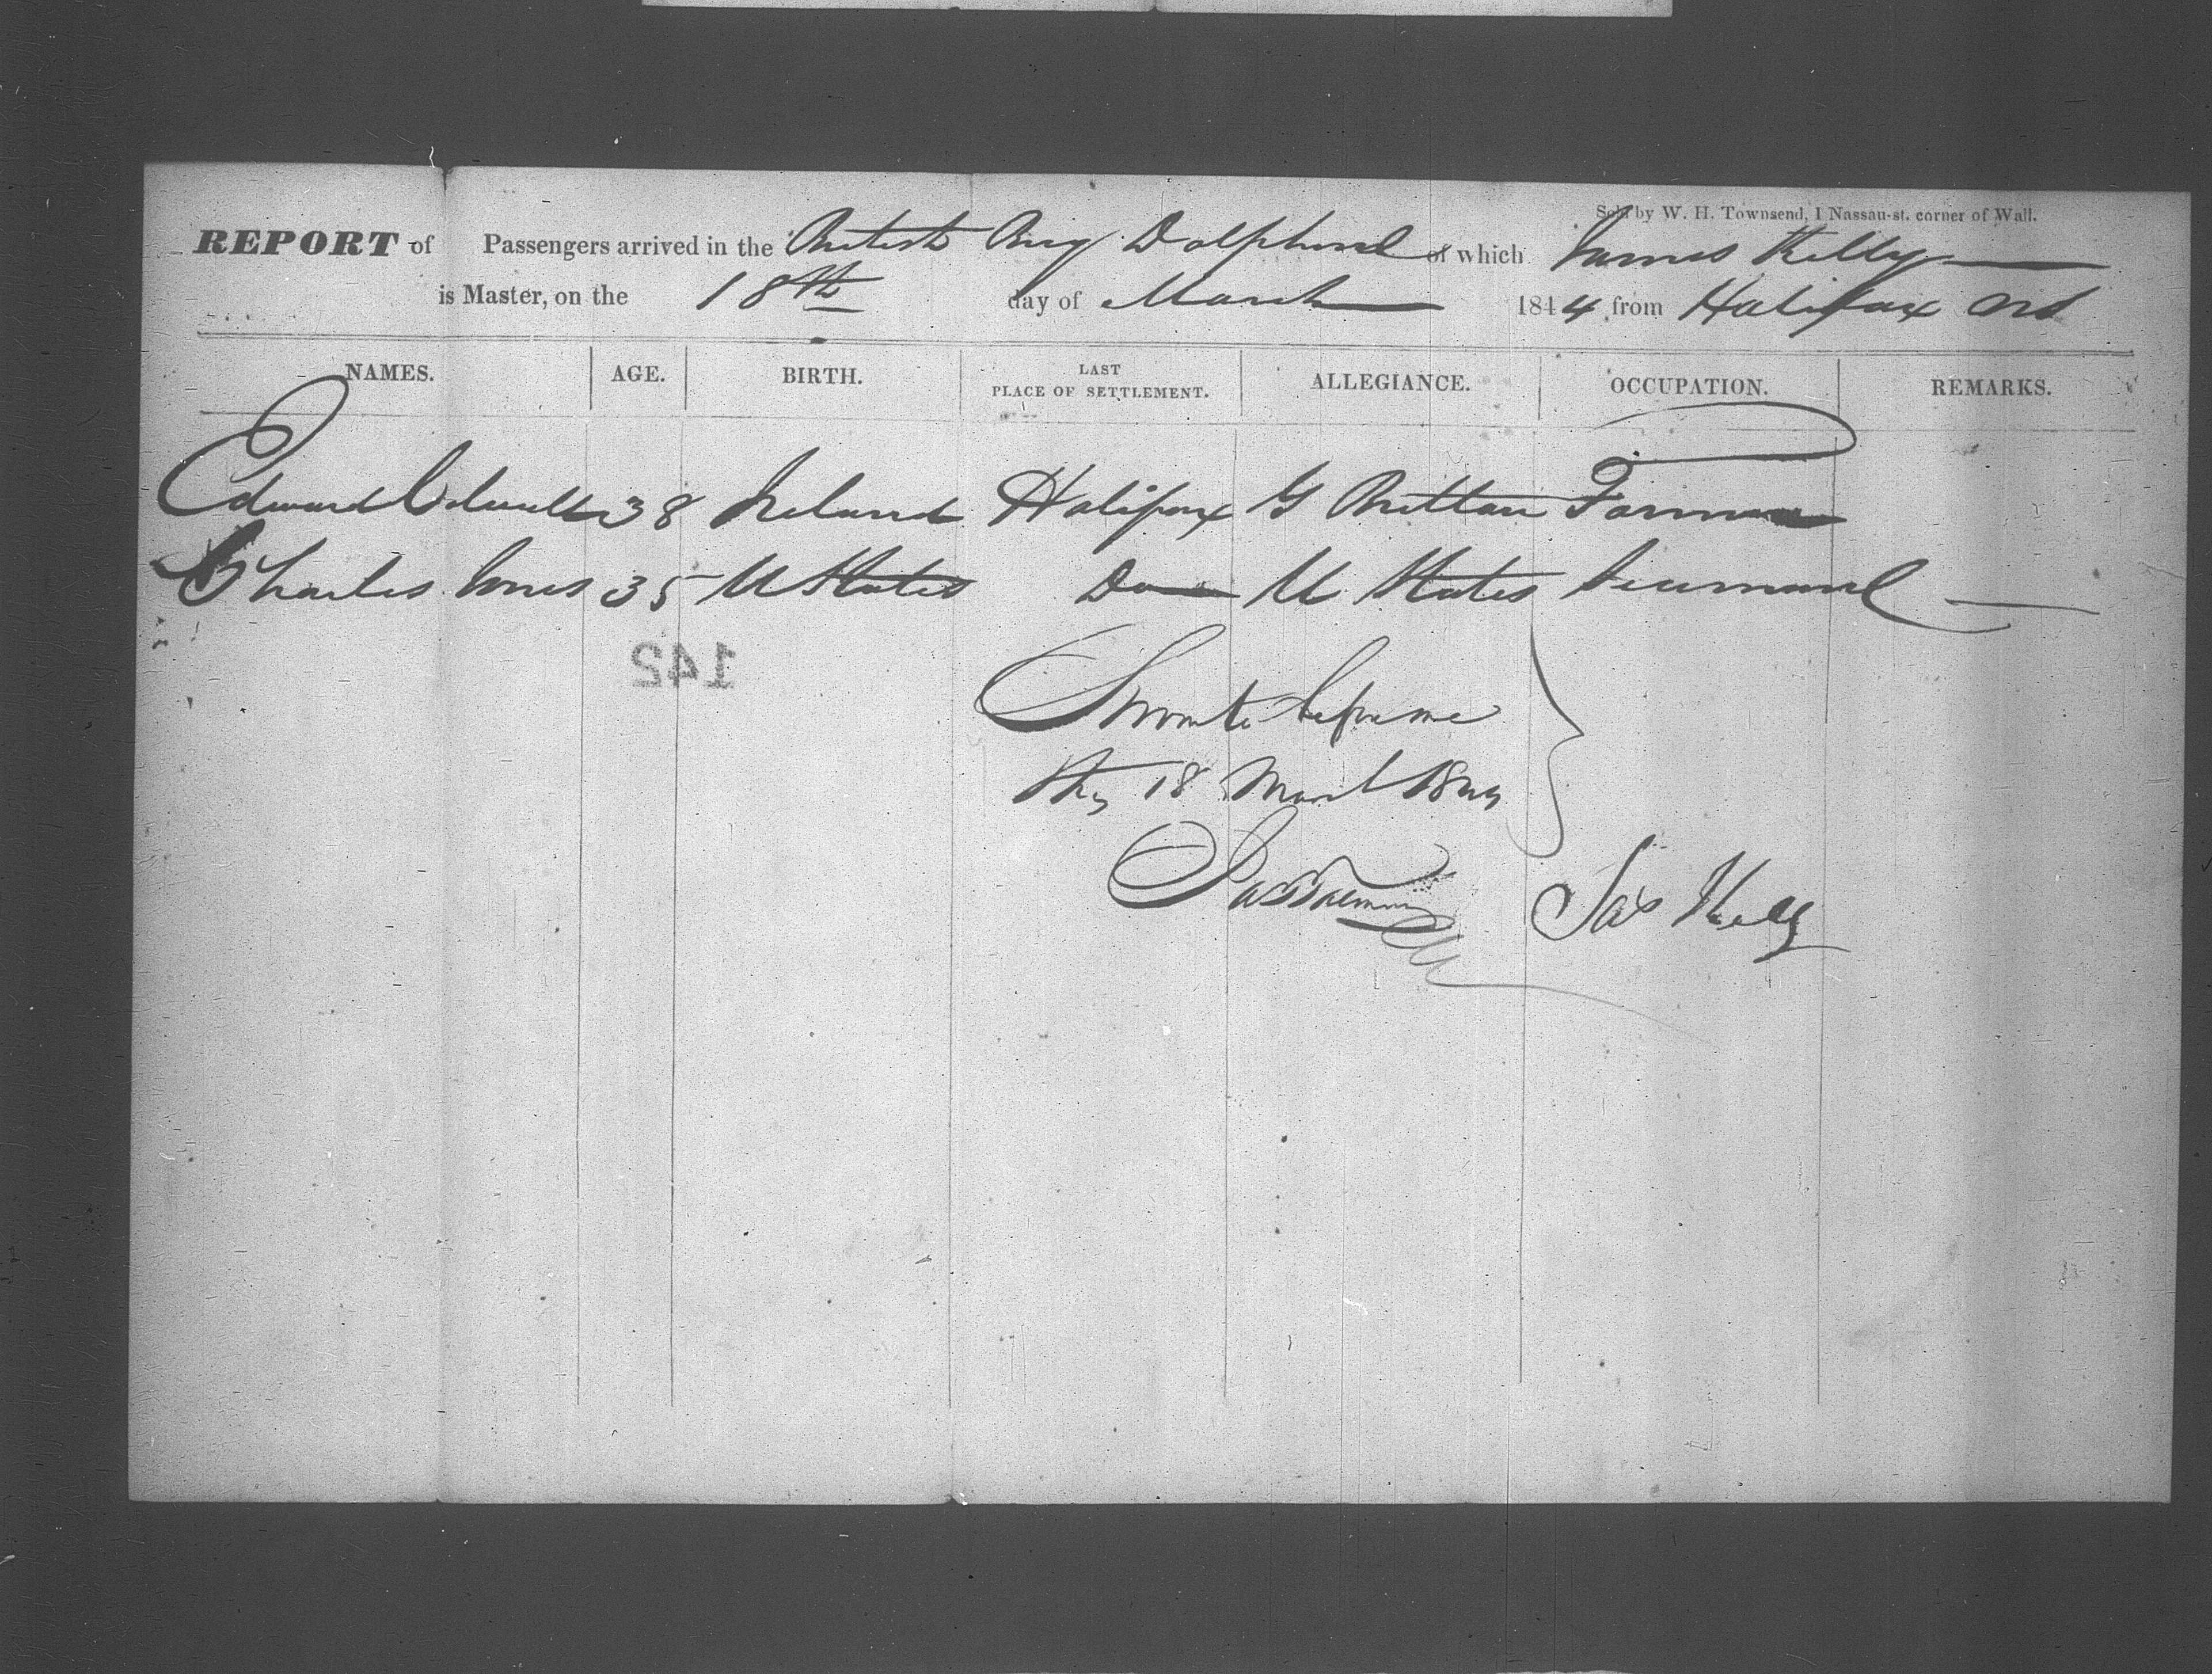 Sold by W. H. Townsend, 1 Nassau-st. corner of Wall.
REPORT of Passengers arrived in the British Brig Dolphin of which James Kelly
is Master, on the 18th day of March 1844 from Halifax NS
NAMES. AGE. BIRTH. LAST PLACE OF SETTLEMENT. ALLEGIANCE. OCCUPATION. REMARKS.
Edward 38 Ireland Halifax G Brittan Farmer
Charles Jones 35 U States Do U States Seaman
142
Sworn to before me
this 18 March 1844
Jas Kelly